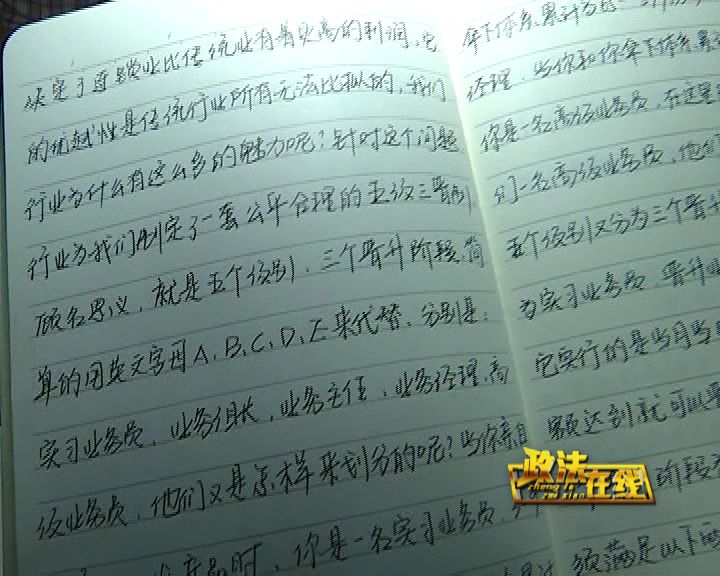 决定了连锁业比传统业有着更高的利润，它
的优越性是传统行业所有无法比拟的，我们
行业为什么有这么多的魅力呢？针对这个问题
行业为我们制定了一套公平合理的五级三晋制
顾名思义，就是五个级别，三个晋升阶段，简
单的用英文字母A、B、C、D、E来代替，分别是：
实习业务员，业务组长，业务主任，业务经理，高
级业务员，他们又是怎样来划分的呢？当你亲自
时，你是一名实习业务员，
年下体系累计为
经理，当你和你伞下体系累
你是一名高级业务员，在这里
们一名高级业务员，他
五个级别又分为三个晋升
为实习业务员，晋升业
它实行的是当月当
额达到就可以
阶段
须满足以下两
政法在线
zheng fa zai xian